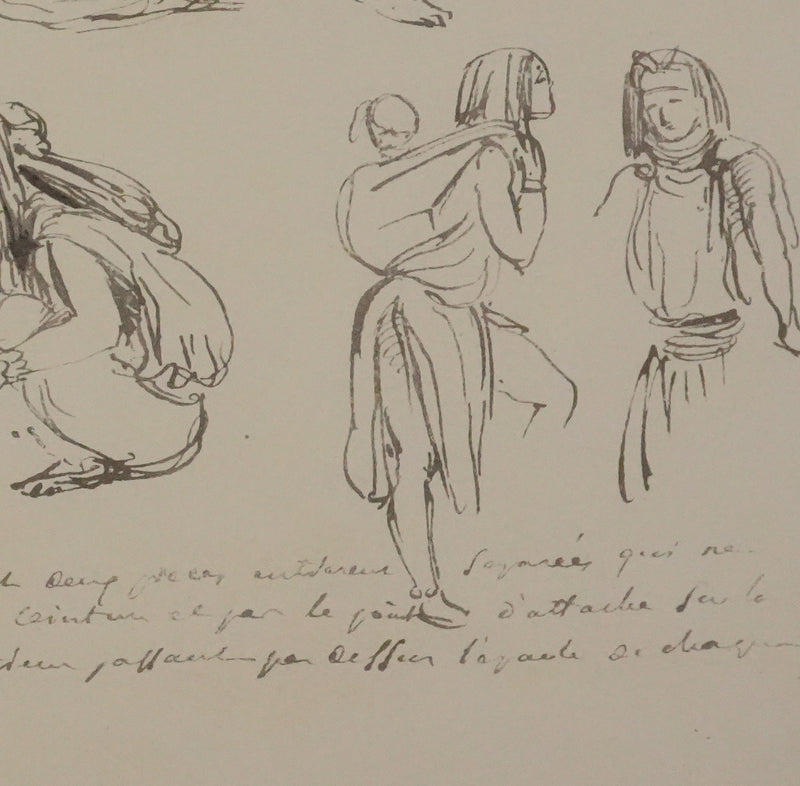 deux pieces entierement separées qui ne
ceinture et par le point d'attache sur le
passant par dessus l'épaule de chaque